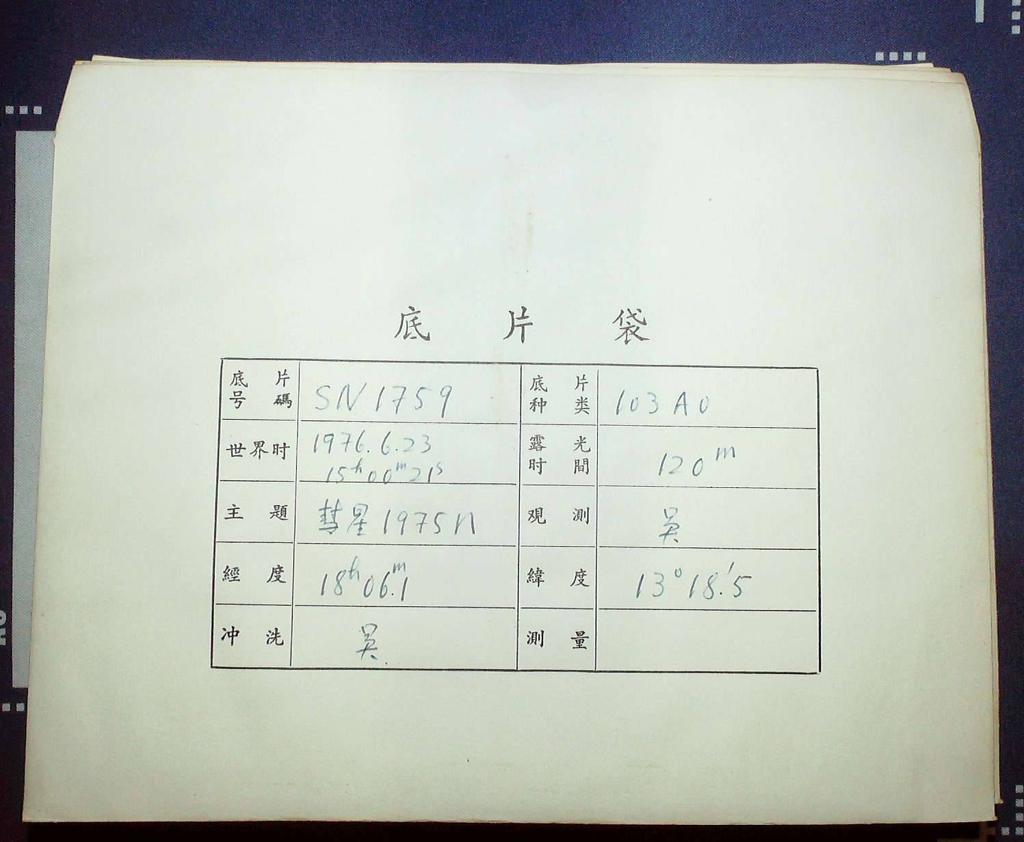 底片袋
底片号碼 SN1759 底片种类 103AO
世界时 1976.6.23 15ʰ00ᵐ21ˢ 露光时間 120ᵐ
主題 彗星1975n 观測 吴
經度 18ʰ06ᵐ.1 緯度 13°18′.5
冲洗 吴 測量